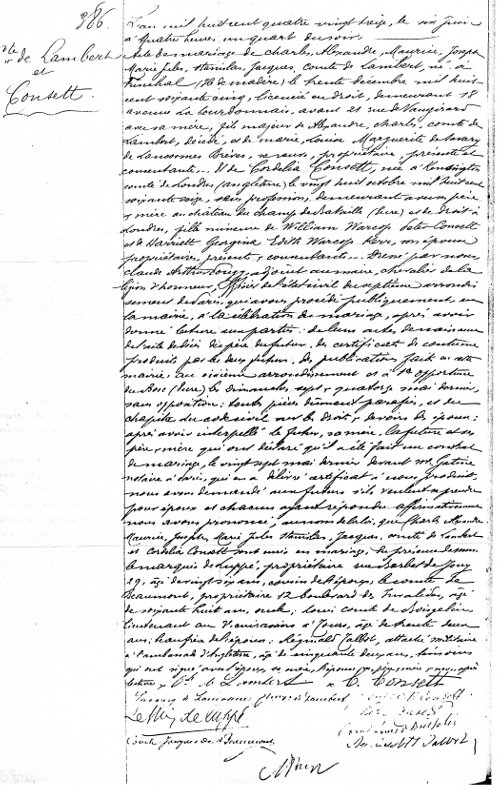 386.
de Lambert
et
Consett.
L'an mil huit cent quatre vingt treize, le six juin
à quatre heures un quart du soir.
Acte de mariage de Charles, Alexandre, Maurice, Joseph
Marie, Jules, Stanislas, Jacques, comte de Lambert, né à
Funchal (Ile de Madère) le trente décembre mil huit
cent soixante cinq, licencié en droit, demeurant 18
avenue La Bourdonnais, avant 21 rue de Vaugirard
avec sa mère, fils majeur de Alexandre, Charles, comte de
Lambert, décédé, et de Marie, Louise Marguerite de
veuve, propriétaire, présente et
consentante. Et de Cordelia Consett, née à Kensington
comté de Londres (Angleterre) le vingt huit octobre mil huit cent
soixante seize, sans profession, demeurant avec ses père
et mère au château du Champ de Bataille (Eure) et de droit à
Londres, fille mineure de William Warcop Peter Consett
et de Harriett Georgina Edith Warcop son épouse
propriétaires, présents et consentants. Dressé par nous
Claude Arthur adjoint au maire, chevalier de la
légion d'honneur, officier de l'état civil du septième arrondis
sement de Paris, qui avons procédé publiquement en
la mairie, à la célébration du mariage, après avoir
donné lecture aux parties: de leurs actes de naissance
de l'acte de décès du père du futur, des certificats de coutume
produits par les deux futurs, des publications faites en cette
mairie: au sixième arrondissement et à Ste Opportune
du Bosc (Eure) les dimanches sept et quatorze mai dernier,
sans opposition: toutes pièces dûment paraphées, et du
chapitre du code civil sur les droits et devoirs des époux:
après avoir interpellé le futur, sa mère, la future et ses
père et mère qui ont déclaré qu'il a été fait un contrat
de mariage, le vingt sept mai dernier devant Me Gatine
notaire à Paris, qui en a délivré certificat à nous produit
nous avons demandé aux futurs s'ils veulent se prendre
pour époux et chacun ayant répondu affirmativement
nous avons prononcé, au nom de la loi, que Charles Alexandre
Maurice, Joseph, Marie Jules Stanislas, Jacques, comte de Lambert
et Cordelia Consett sont unis en mariage. En présence de
le marquis de Luppé, propriétaire rue Barbet de Jouy
29, âgé de vingt six ans, cousin de l'époux, le comte de
Beaumont, propriétaire 12 boulevard des Invalides, âgé
de soixante huit ans, oncle, Louis comte de Boisgelin
lieutenant au cuirassiers à Tours, âgé de trente deux
ans; de l'épouse; Réginald Talbot, attaché militaire
à l'ambassade d'Angleterre, âgé de cinquante deux ans, témoins
qui ont signé avec l'époux, sa mère, l'épouse, ses père et mère et nous après
lecture
Cte de Lambert C. Consett
Le Mis de Luppé
Comte Jacques de Beaumont